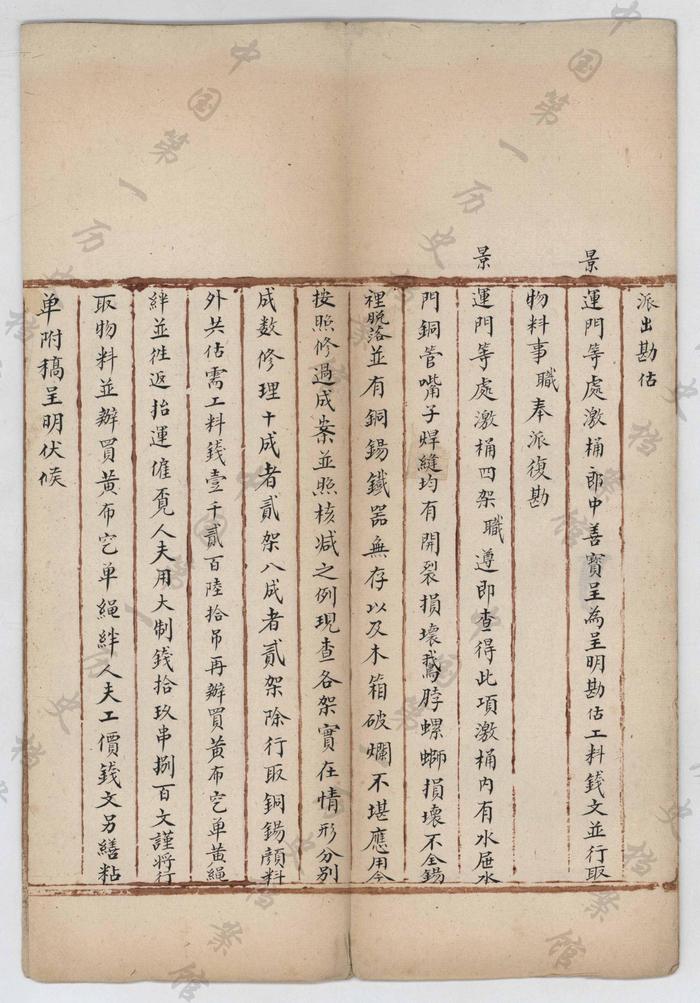 派出勘估
景運門等處激桶郎中善寶呈為呈明勘估工料錢文並行取
物料事職奉派復勘
景運門等處激桶四架職遵即查得此項激桶內有水屉水
門銅管嘴子焊縫均有開裂損壞鵞脖螺螄損壞不全錫
裡脫落並有銅錫鐵器無存以及木箱破爛不堪應用今
按照修過成案並照核減之例現查各架實在情形分別
成數修理十成者貳架八成者貳架除行取銅錫顏料
外共估需工料錢壹千貳百陸拾吊再辦買黃布空单黃繩
絆並往返抬運僱覓人夫用大制錢拾玖串捌百文謹將行
取物料並辦買黃布空单繩絆人夫工價錢文另繕粘
单附稿呈明伏候
中国第一历史档案馆